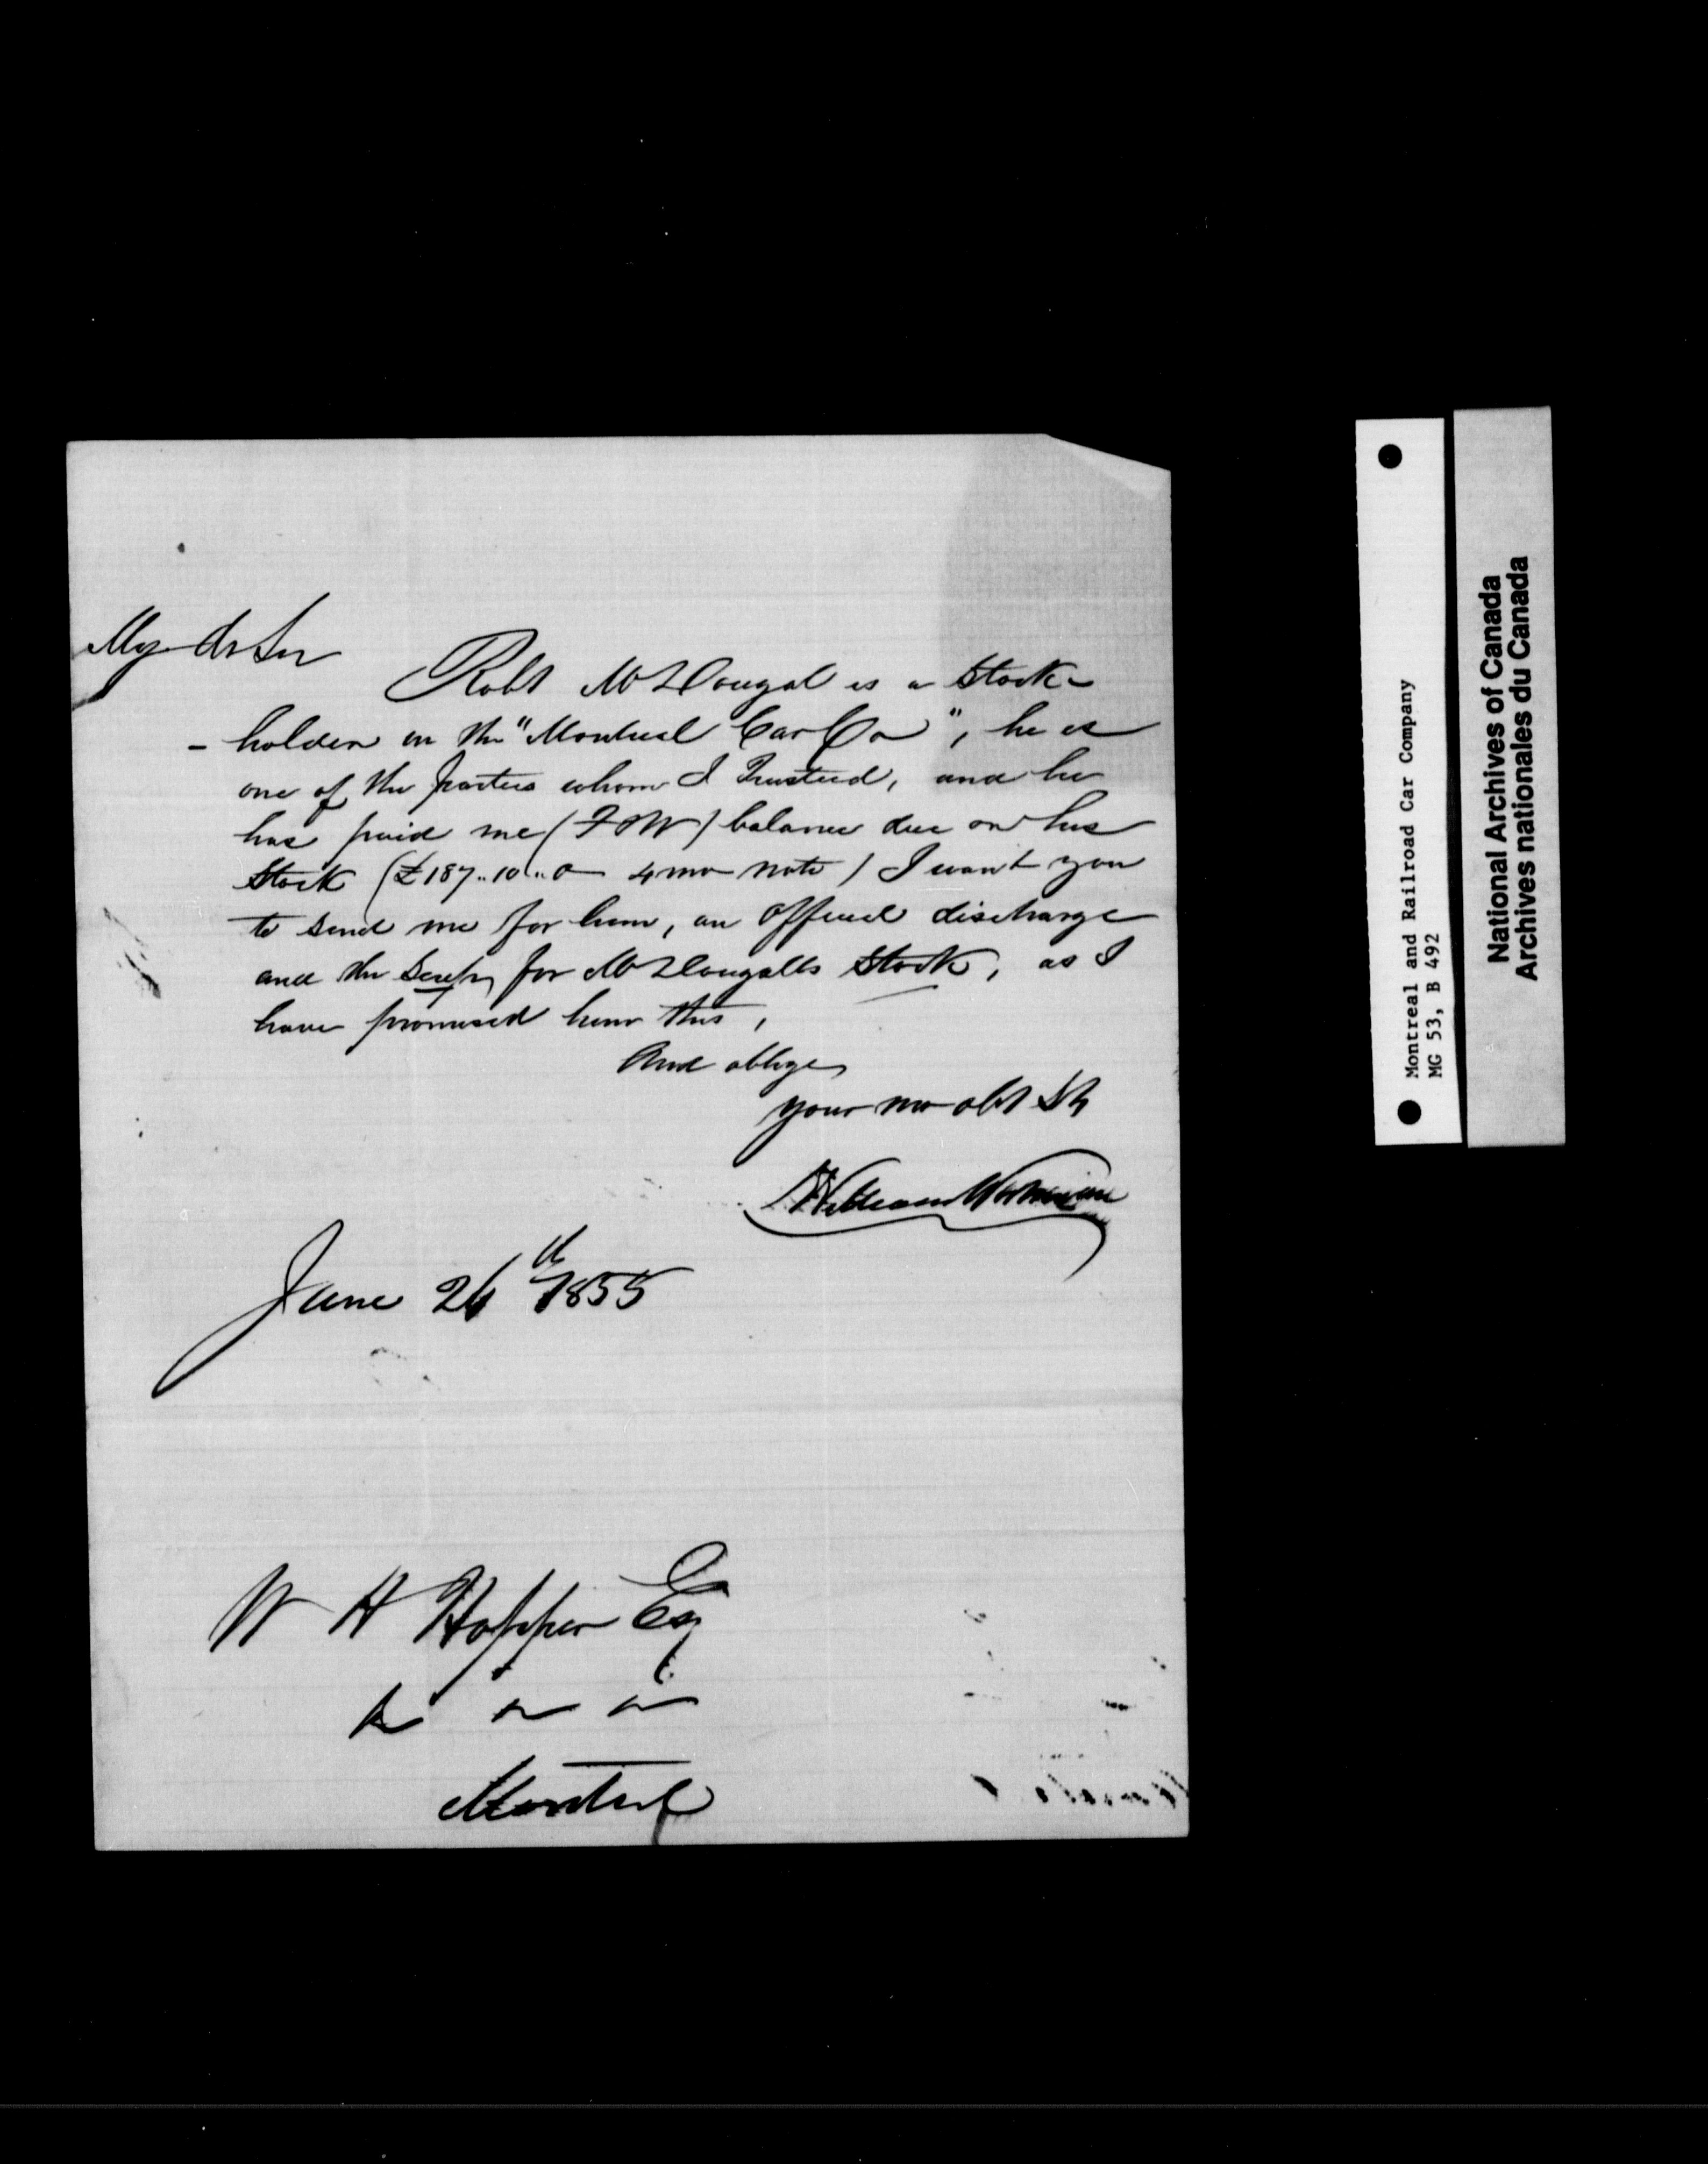 My dr Sir
Robt McDougal is a Stock-
- holder in the "Montreal Car Co", he is
one of the parties whom I Trusteed, and he
has paid me ( ) balance due on his
Stock (£187..10..0 4 mo note) I want you
to send me for him, an Official discharge
and the Scrip for McDougalls Stock, as I
have promised him this,
And oblige
your mo obt St
William Workman
June 26th 1855
W H Hopper Esq
Montreal
Montreal and Railroad Car Company
MG 53, B 492
National Archives of Canada
Archives nationales du Canada